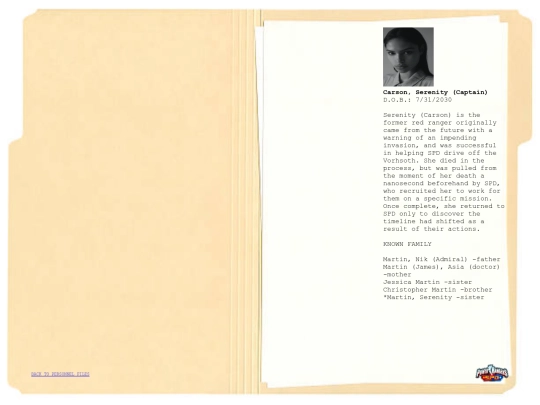 Carson, Serenity (Captain)
D.O.B.: 7/31/2030
Serenity (Carson) is the
former red ranger originally
came from the future with a
warning of an impending
invasion, and was successful
in helping SPD drive off the
Vorhsoth. She died in the
process, but was pulled from
the moment of her death a
nanosecond beforehand by SPD,
who recruited her to work for
them on a specific mission.
Once complete, she returned to
SPD only to discover the
timeline had shifted as a
result of their actions.
KNOWN FAMILY
Martin, Nik (Admiral) -father
Martin (James), Asia (doctor)
-mother
Jessica Martin -sister
Christopher Martin -brother
*Martin, Serenity -sister
BACK TO PERSONNEL FILES
Power Rangers